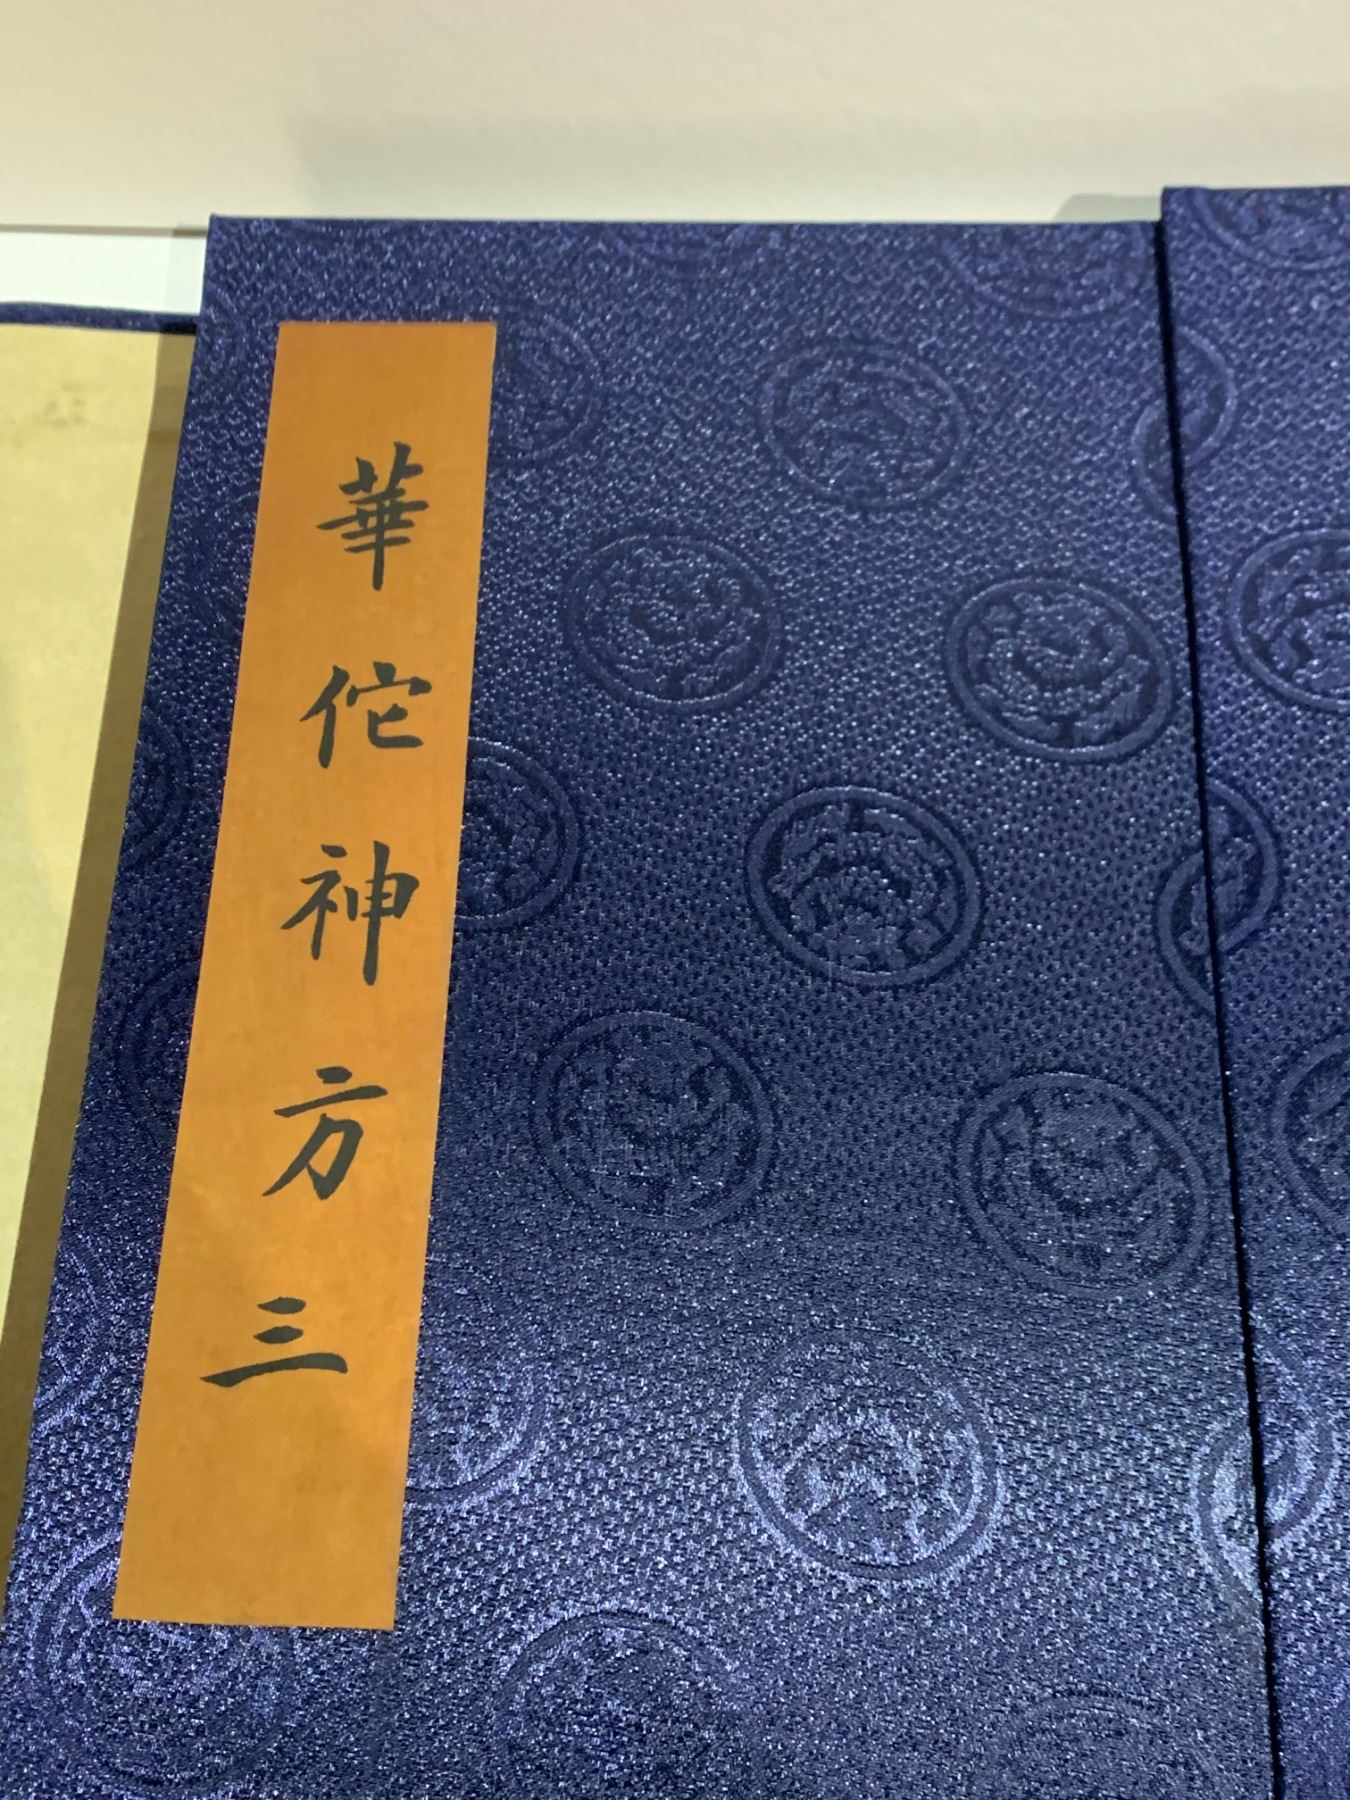 華佗神方三